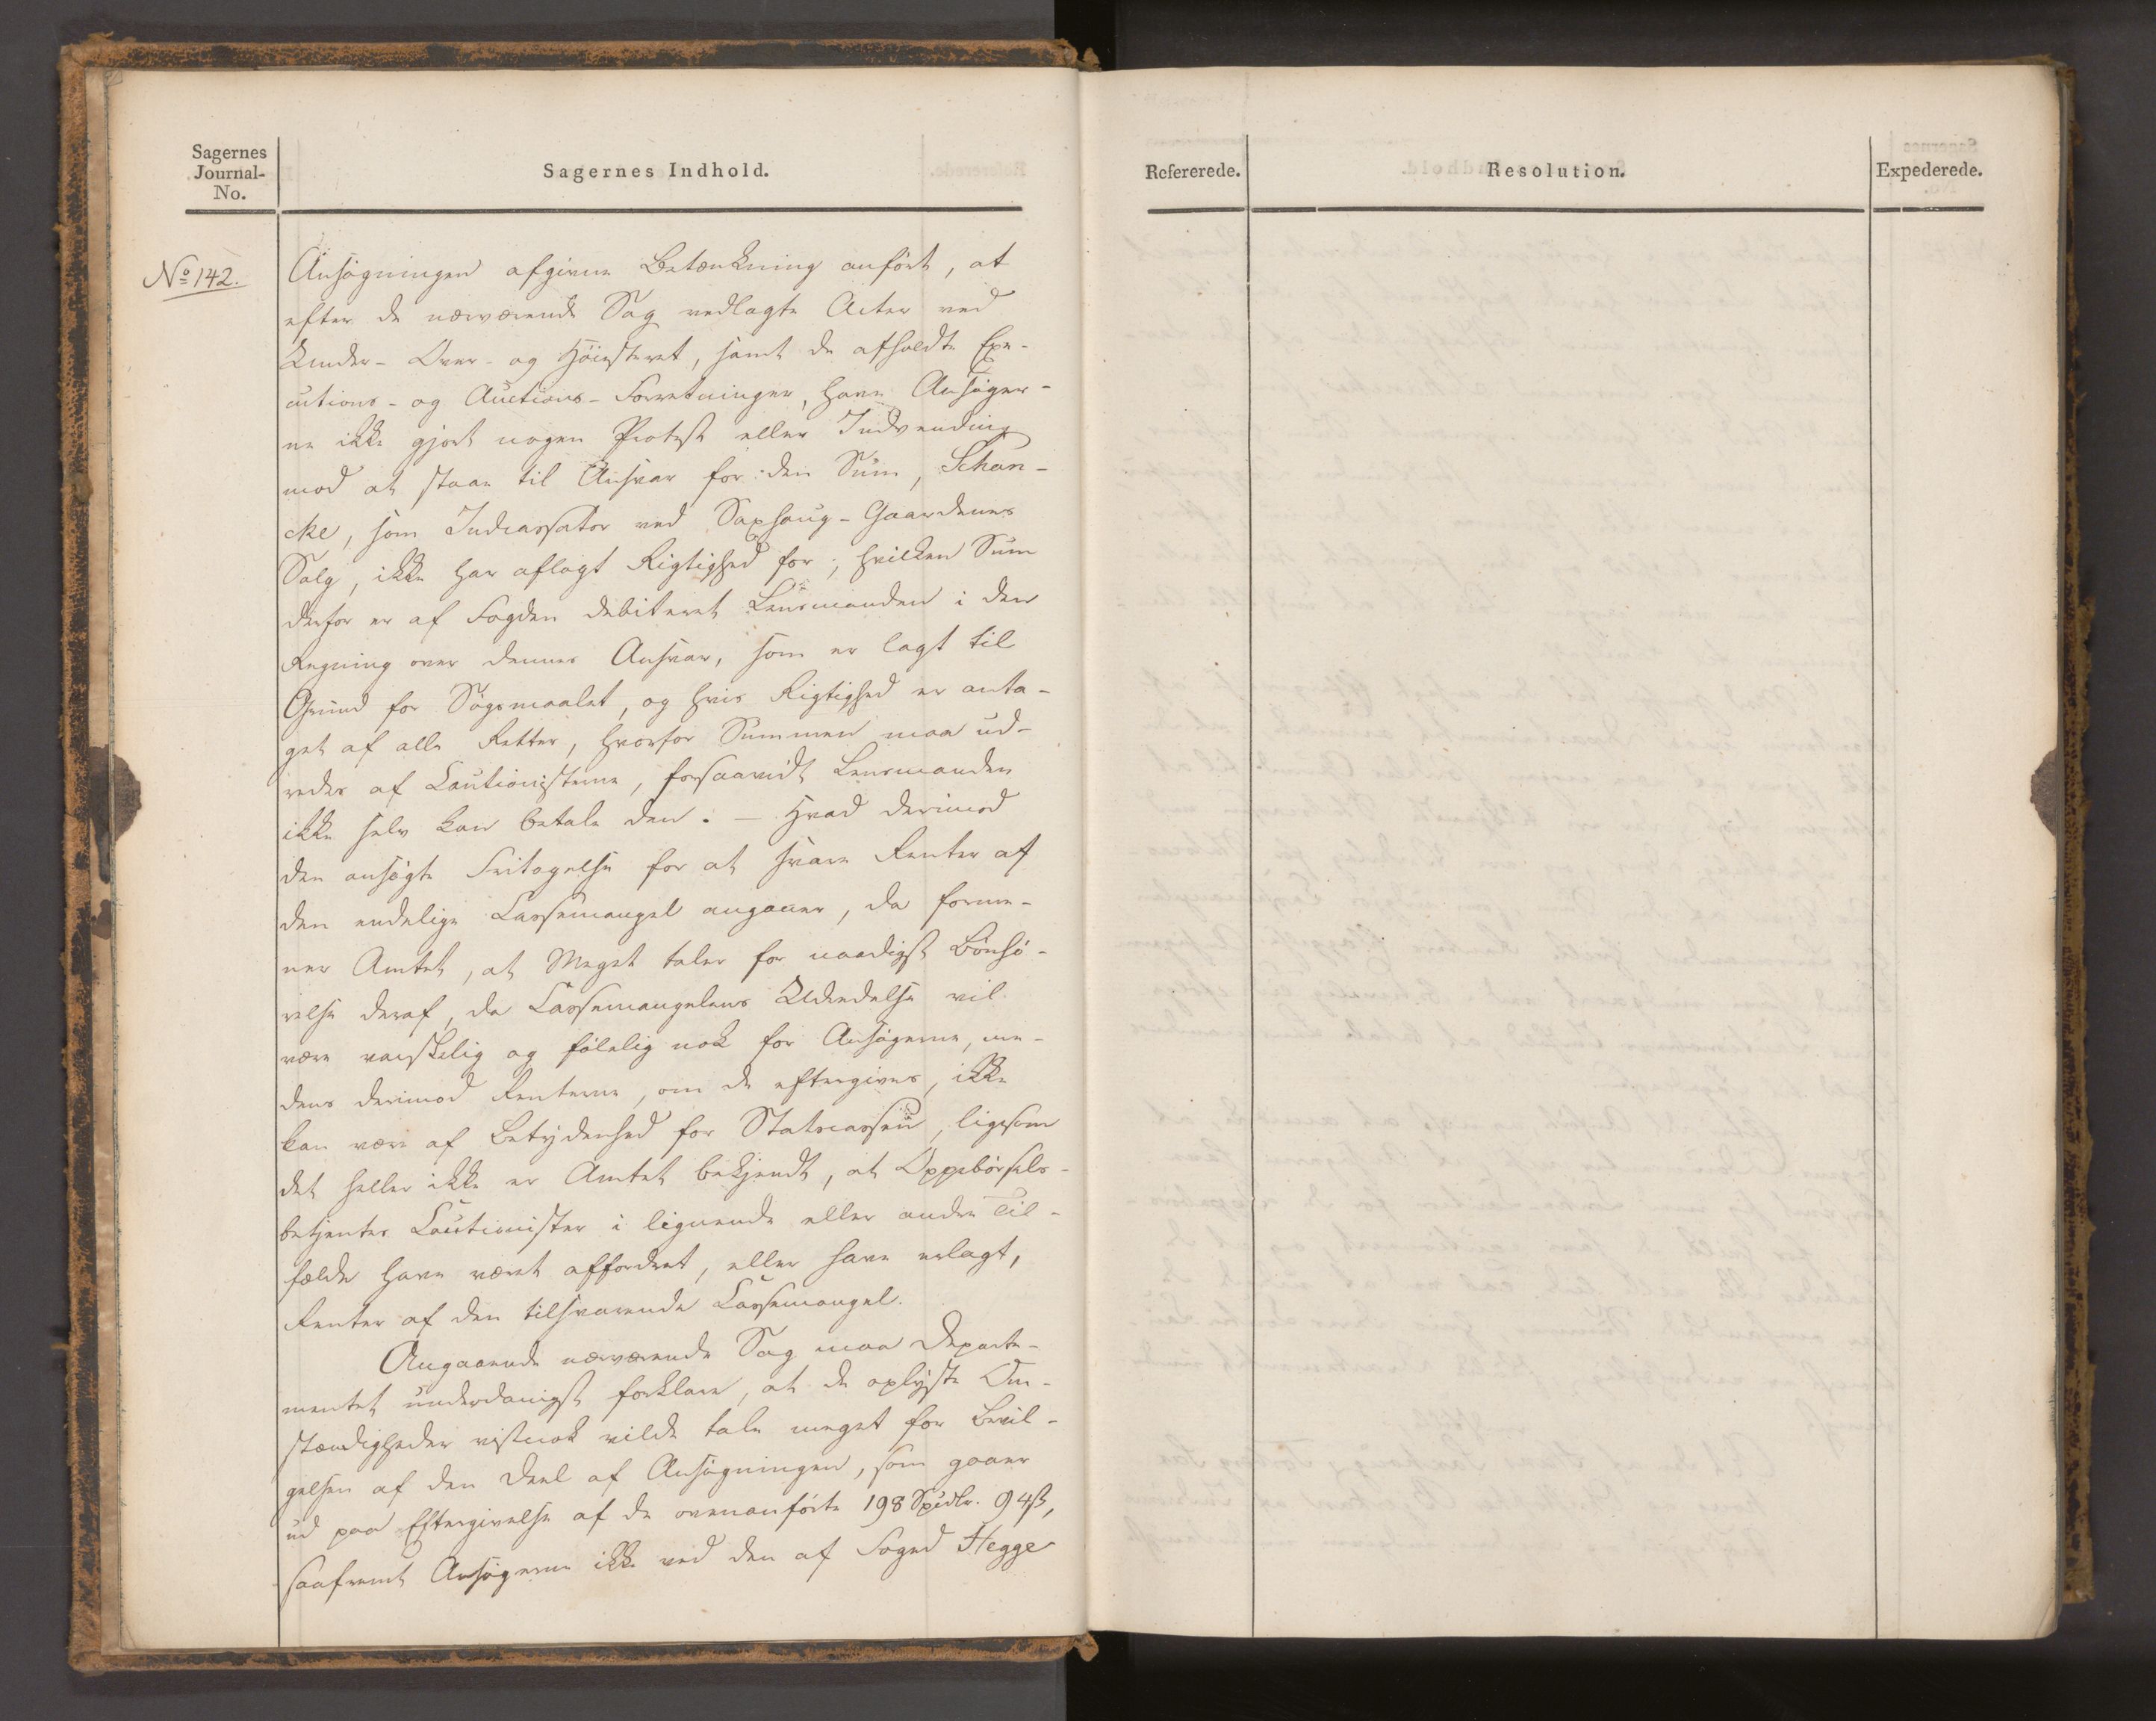 Sagernes
Journal-
No.
Sagernes Indhold.
Refererede.
Resolution.
Expederede.
No 142.
Ansøgningen afgivne Betænkning anført, at
efter de nærværende Sag vedlagte Acter ved
Under- Over- og Höiesteret, samt de afholdte Exe-
cutions- og Auctions-Forretninger, have Ansøger-
ne ikke gjort nogen Protest eller Indvending
mod at staae til Ansvar for den Sum, Schan-
cke, som Indcassator ved Saxhaug-Gaardenes
Salg, ikke har aflagt Rigtighed for; hvilken Sum
derfor er af Fogden debiteret Lensmanden i den
Regning over dennes Ansvar, som er lagt til
Grund for Søgsmaalet, og hvis Rigtighed er anta-
get af alle Retter, hvorfor Summen maa ud-
redes af Cautionisterne, forsaavidt Lensmanden
ikke selv kan betale den. — Hvad derimod
den ansøgte Fritagelse for at svare Renter af
den endelige Cassemangel angaaer, da forme-
ner Amtet, at Meget taler for naadigst Bönhö-
relse deraf, da Cassemangelens Udredelse vil
være vanskelig og følelig nok for Ansøgerne, me-
dens derimod Renterne, om de eftergives, ikke
kan være af Betydenhed for Statscassen, ligesom
det heller ikke er Amtet bekjendt, at Oppebørsels-
betjentes Cautionister i lignende eller andre Til-
fælde have været affordret, eller have erlagt,
Renter af den tilsvarende Cassemangel.
Angaaende nærværende Sag maa Departe-
mentet underdanigst forklare, at de oplyste Om-
stændigheder vistnok vilde tale meget for Bevil-
gelsen af den Deel af Ansøgningen, som gaaer
ud paa Eftergivelse af de ovenanførte 198 Spdlr. 94 ß,
saafremt Ansøgerne ikke ved den af Foged Hegge